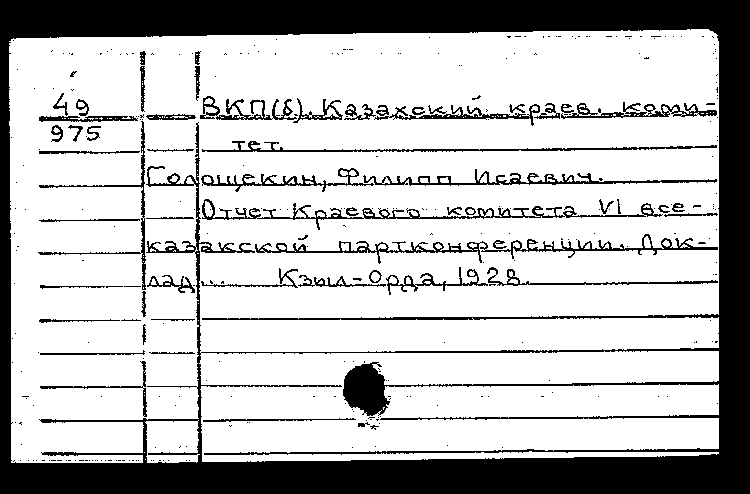 49 ВКП(б). Казахский краев. коми-
975 тет.
Голощекин, Филипп Исаевич.
Отчет Краевого комитета VI все-
казакской партконференции. Док-
лад... Кзыл-Орда, 1928.